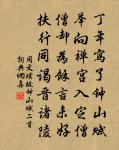 丁年寫了鍾山賦
舉向禪宮入定僧
僧却為餘言未好
扶行同謁晉諸陵
周文璞跋鍾山賦二首